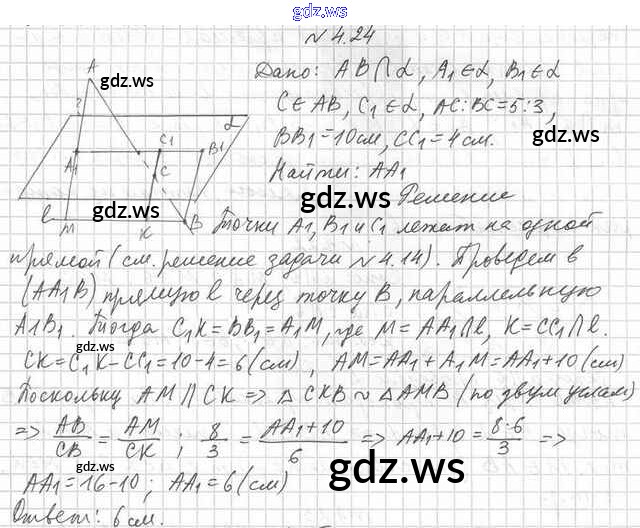 gdz.ws
№ 4.24
Дано: AB∩α, A₁∈α, B₁∈α
C∈AB, C₁∈α, AC:BC=5:3,
BB₁=10см, CC₁=4см.
Найти: AA₁
Решение
A
gdz.ws
?
α
C₁
B₁
A₁
C
gdz.ws
gdz.ws
l
M
K
B
Точки A₁, B₁ и C₁ лежат на одной
прямой (см. решение задачи №4.14). Проведем в
(AA₁B) прямую l через точку B, параллельную
A₁B₁. Тогда C₁K=BB₁=A₁M, где M=AA₁∩l, K=CC₁∩l.
CK=C₁K-CC₁=10-4=6(см), AM=AA₁+A₁M=AA₁+10(см)
Поскольку AM∥CK => △CKB ~ △AMB (по двум углам)
=> AB/CB = AM/CK ; 8/3 = AA₁+10/6 => AA₁+10=8·6/3 =>
AA₁=16-10; AA₁=6(см)
gdz.ws
Ответ: 6см.